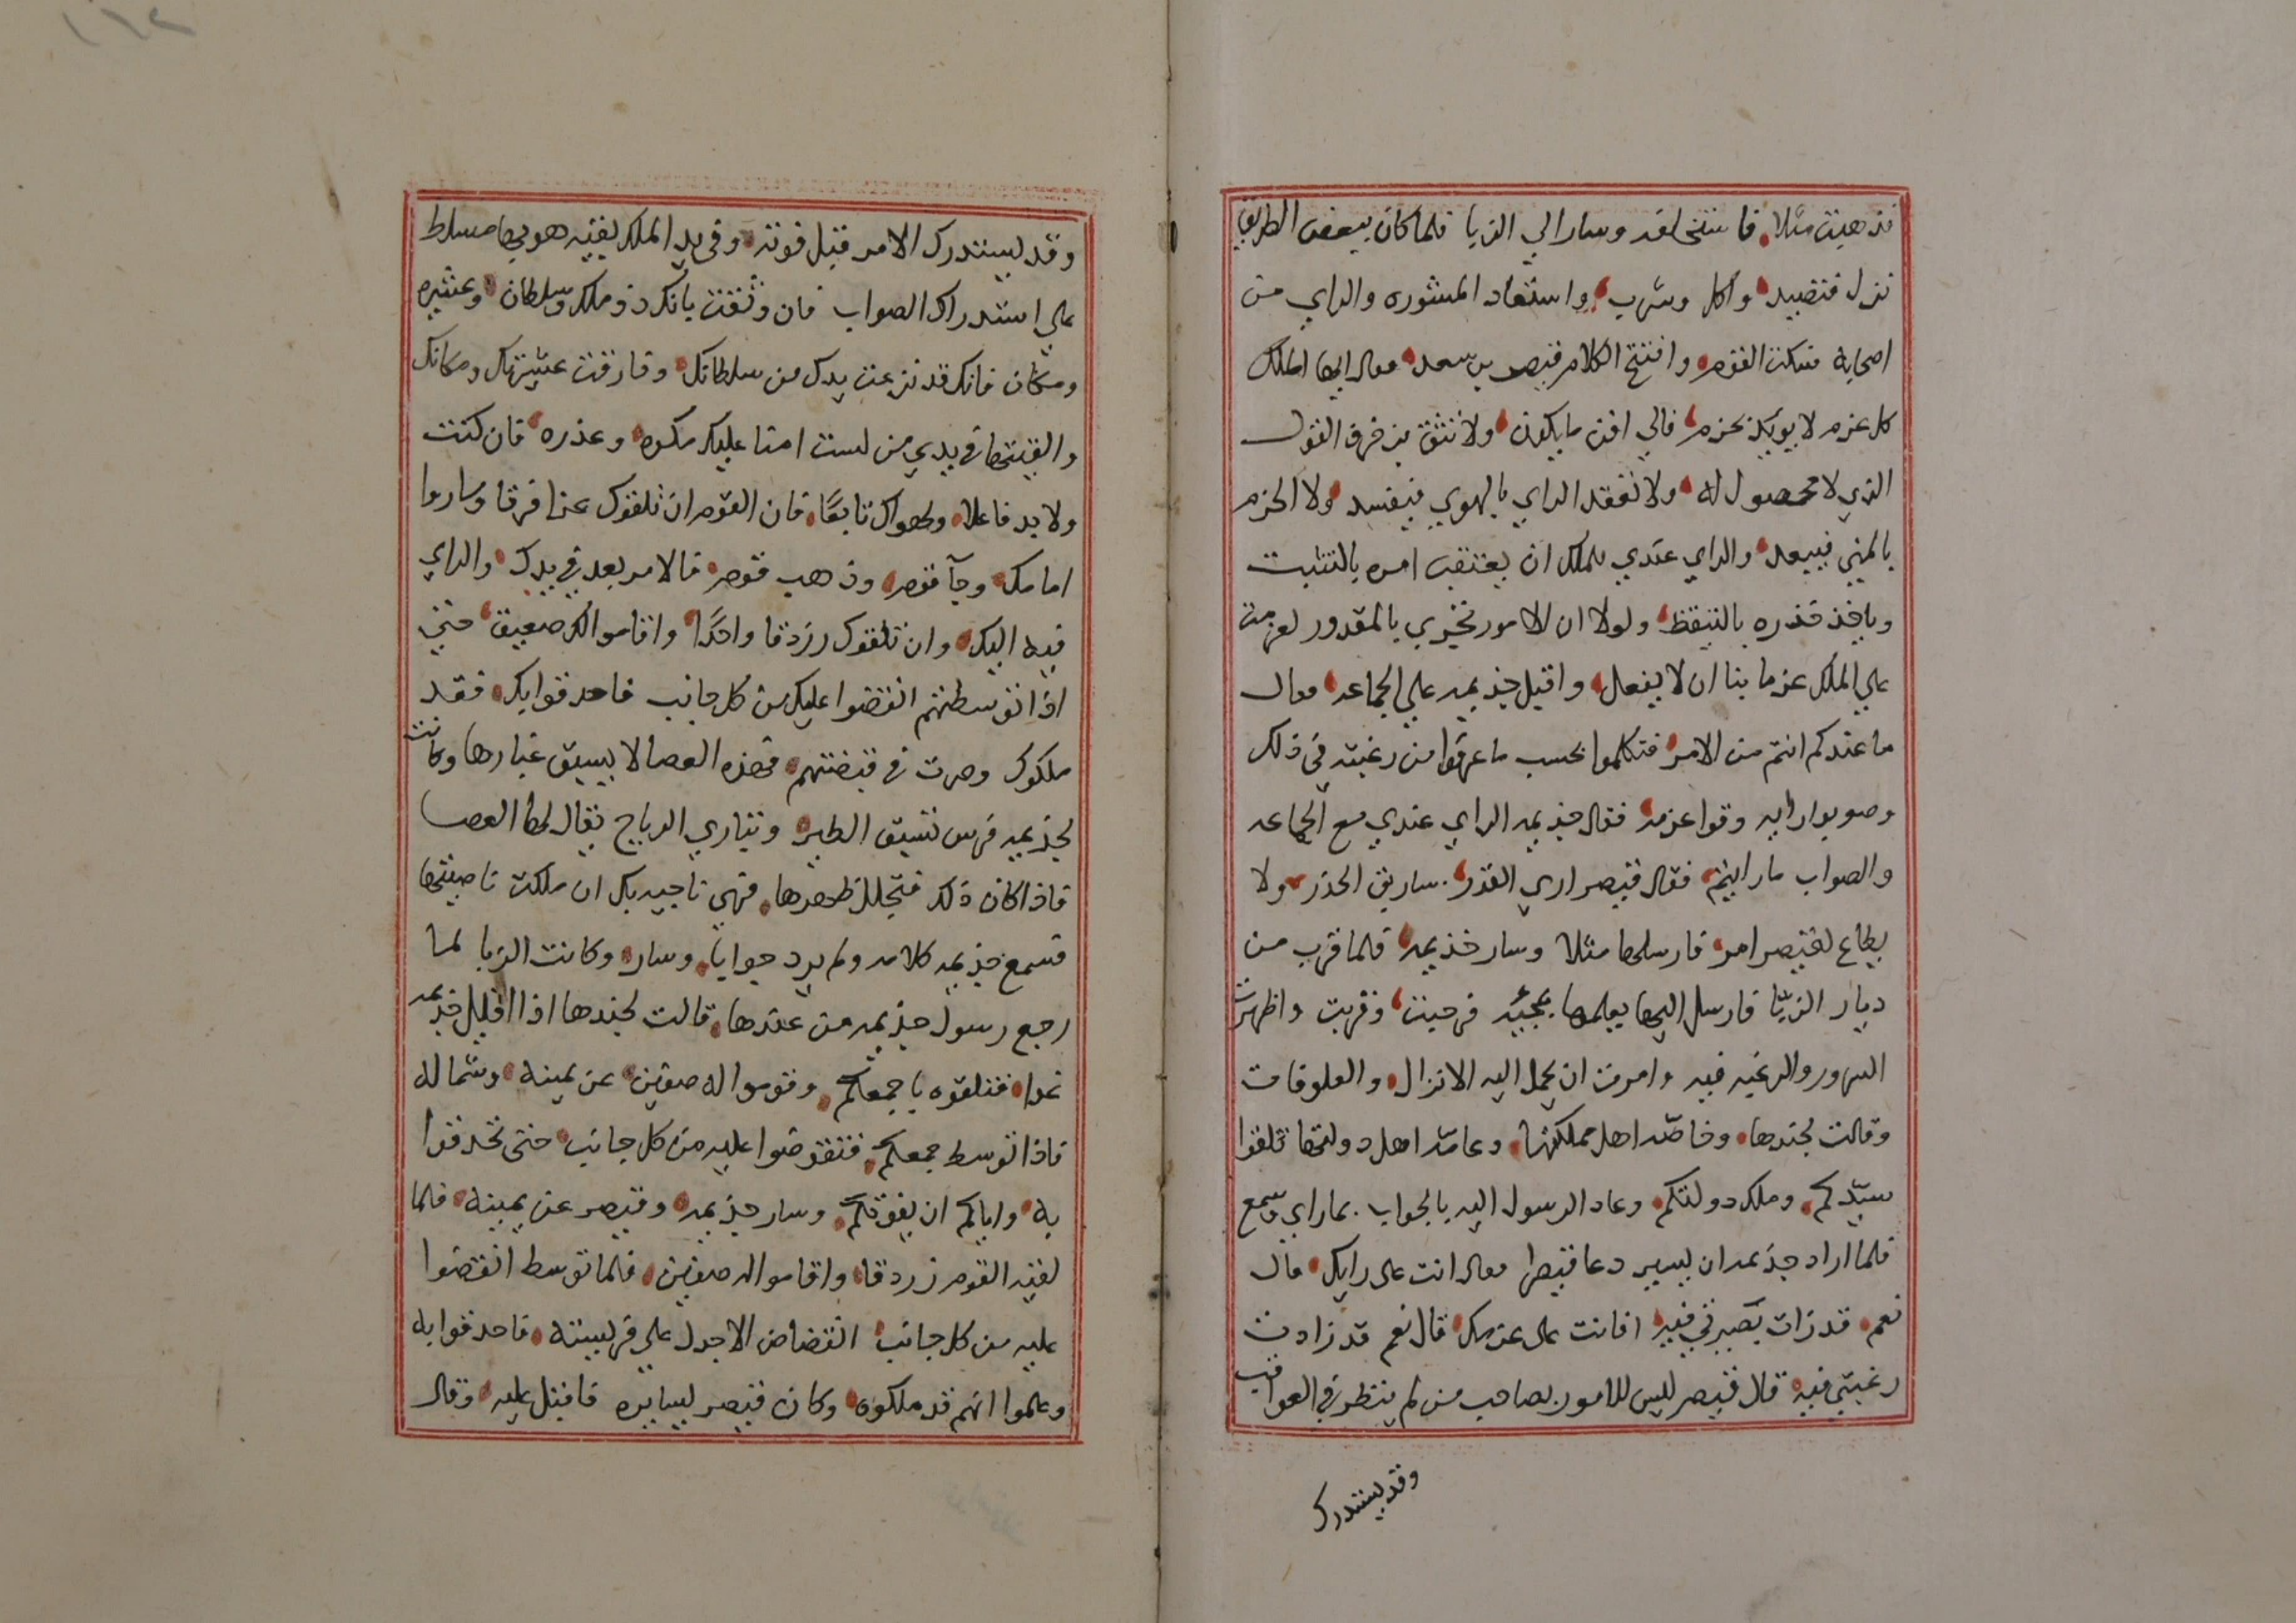 فذهبت مثلا فاستخلفه وسار الي الزبا فلما كان ببعض الطريق
نزل فتصيد واكل وشرب واستعاد المشوره والراي من
اصحابه فسكت القوم وافتتح الكلام قيصر بن سعد فقال ايها الملك
كل عزم لا يويد بحزم فالي افن ما يكون ولا تثق بزخرف القول
الذي لا محصول له ولا تعقد الراي بالهوي فيفسد ولا الحزم
بالمني فيبعد والراي عندي للملك ان يعتقب امره بالتثبت
وياخذ حذره بالتيقظ ولولا ان الامور تجري بالمقدور لعزمت
علي الملك عزما بتا ان لا يفعل واقبل جذيمه علي الجماعه فقال
ما عندكم انتم من الامر فتكلموا بحسب ما عرفوا من رغبته في ذلك
وصوبوا رايه وقوا عزمه فقال جذيمه الراي عندي مع الجماعه
والصواب ما رايتم فقال قيصر اري القدر سابق الحذر ولا
يطاع لقيصر امر فارسلها مثلا وسار جذيمه فلما قرب من
ديار الزبا فارسل اليها يعلمها بمجيه فرحبت وقربت واظهرت
السرور والرغبه فيه وامرت ان يحمل اليه الانزال والعلوفات
وقالت لجندها وخاصه اهل مملكتها وعامه اهل دولتها تلقوا
سيدكم وملك دولتكم وعاد الرسول اليه بالجواب بما راي وسمع
فلما اراد جذيمه ان يسير دعا قيصرا فقال انت على رايك قال
نعم قد زات بصيرتي فيه افانت على عزمك قال نعم قد زادت
رغبتي فيه قال قيصر ليس للامور بصاحب من لم ينظر في العواقب
وقد يستدرك
وقد يستدرك الامر قبل فوته وفي يد الملك بقيه هو بها مسلط
علي استدراك الصواب فان وثقت بانك ذو ملك وسلطان وعشيره
ومكان فانك قد نزعت يدك من سلطانك وفارقت عشيرتك ومكانك
والقيتها في يدي من لست امنا عليك مكره وغدره فان كنت
ولا بد فاعلا ولهواك تابعا فان القوم ان تلقوك غدا فرقا وساروا
امامك وجآ قوم وذهب قوم فالامر بعد في يدك والراي
فيه اليك وان تلقوك رزدقا واحدا واقاموا لك صفين حتي
اذا توسطتهم انقضوا عليك من كل جانب فاحدقوا بك فقد
ملكوك وصرت في قبضتهم فهذه العصا لا يسبق غبارها وكانت
لجذيمه فرس تسبق الطير وتباري الرياح يقال لها العصا
فاذا كان ذلك فتجلل ظهرها فهي ناجيه بك ان ملكت ناصيتها
فسمع جذيمه كلامه ولم يرد جوابا وسار وكانت الزبا لما
رجع رسول جذيمه من عندها قالت لجندها اذا اقبل جذيمه
غدا فتلقوه باجمعكم وقوموا له صفين عن يمينه وشماله
فاذا توسط جمعكم فتقوضوا عليه من كل جانب حتى تحدقوا
به واياكم ان يفوتكم وسار جذيمه وقيصر عن يمينه فلما
لقيه القوم زردقا واقاموا له صفين فلما توسط انقضوا
عليه من كل جانب انقضاض الاجدل علي فريسته فاحدقوا به
وعلموا انهم قد ملكوه وكان قيصر يسايره فاقبل عليه وقال